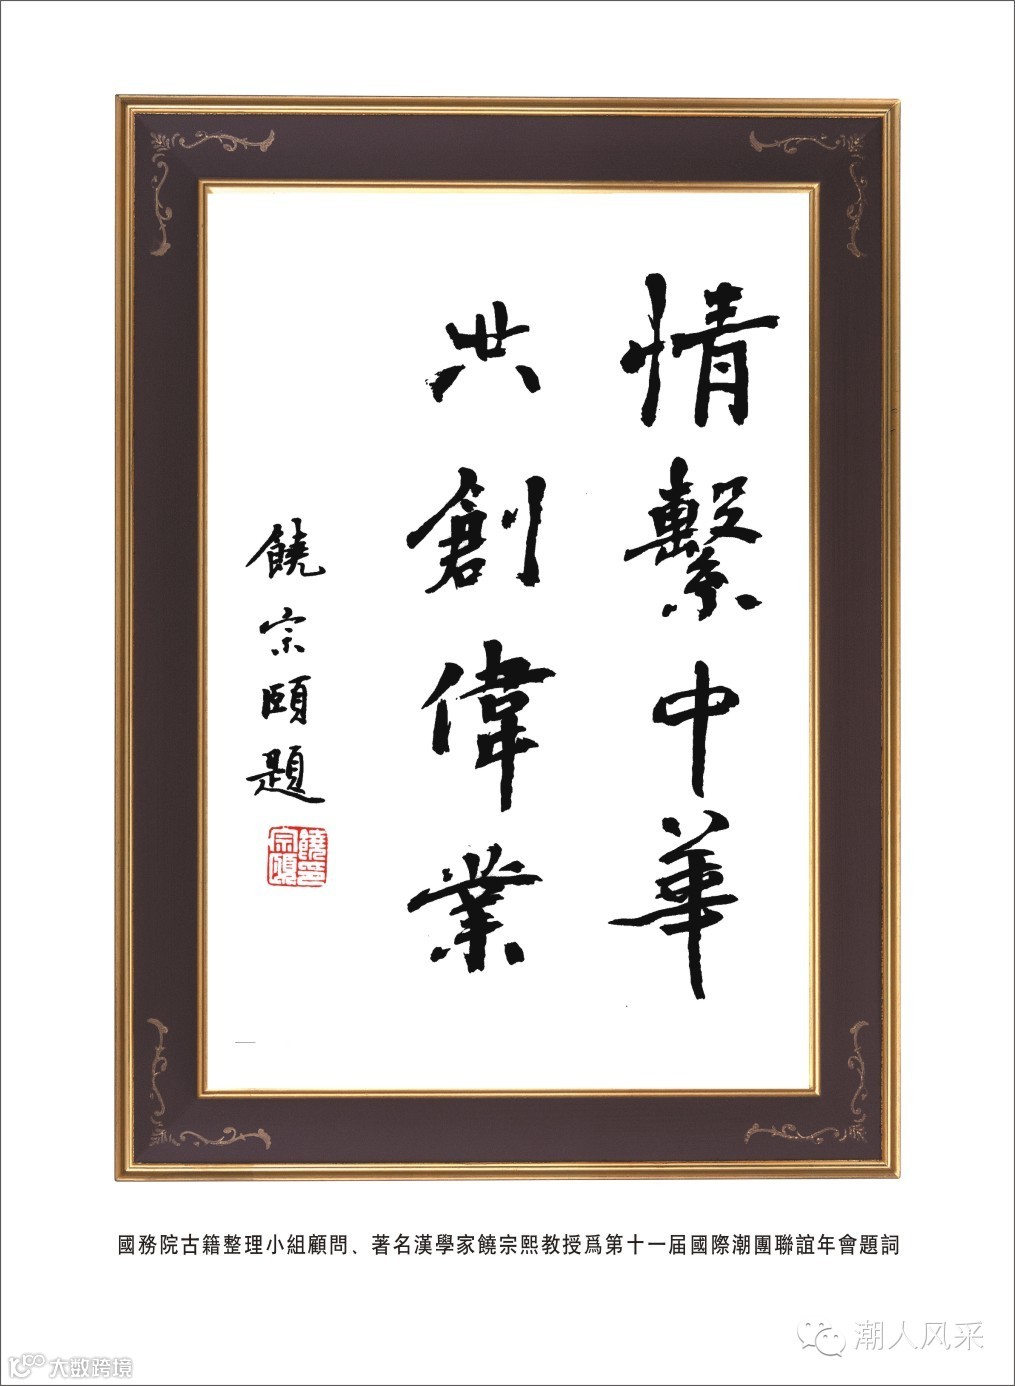 情繫中華
共創偉業
饒宗頤題
饒宗頤印
國務院古籍整理小組顧問、著名漢學家饒宗熙教授爲第十一届國際潮團聯誼年會題詞
潮人风采
大数跨境